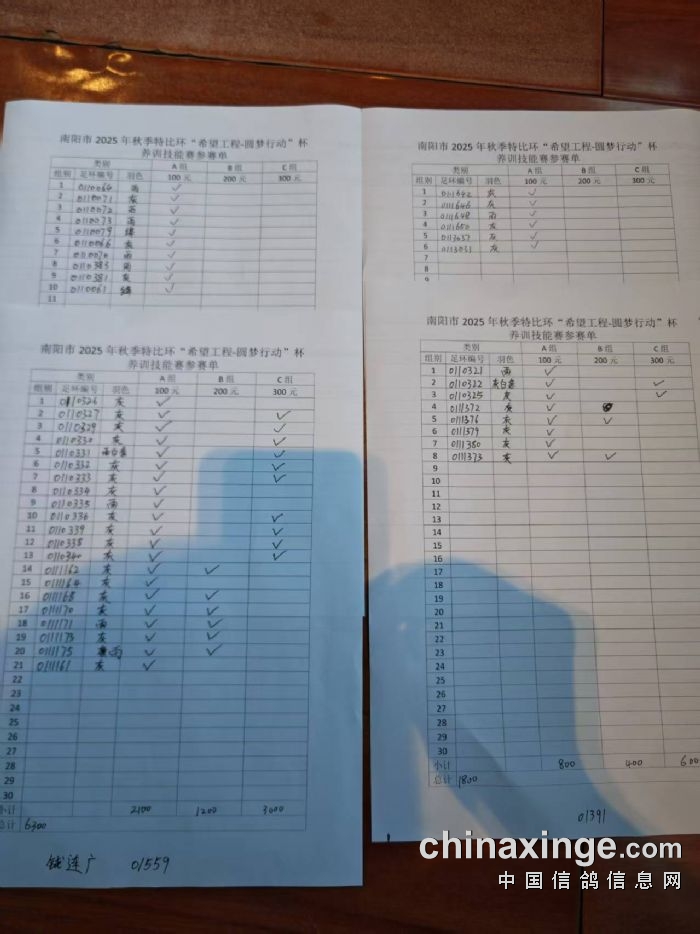 南阳市 2025 年秋季特比环“希望工程-圆梦行动”杯
养训技能赛参赛单
类别 A 组 B 组 C 组
组别 足环编号 羽色 100 元 200 元 300 元
1 0110064 雨 ✓
2 0110071 灰 ✓
3 0110072 雨 ✓
4 0110073 雨 ✓
5 0110079 绛 ✓
6 0110066 灰 ✓
7 0110070 雨 ✓
8 0110383 雨 ✓
9 0110381 灰 ✓
10 0110061 绛 ✓
11
南阳市 2025 年秋季特比环“希望工程-圆梦行动”杯
养训技能赛参赛单
类别 A 组 B 组 C 组
组别 足环编号 羽色 100 元 200 元 300 元
1 0111642 灰 ✓
2 0111646 灰 ✓
3 0111648 雨 ✓
4 0111650 灰 ✓
5 0113037 灰 ✓
6 0113031 灰 ✓
7
8
9
南阳市 2025 年秋季特比环“希望工程-圆梦行动”杯
养训技能赛参赛单
类别 A 组 B 组 C 组
组别 足环编号 羽色 100 元 200 元 300 元
1 0110326 灰 ✓
2 0110327 灰 ✓ ✓
3 0110329 灰 ✓ ✓
4 0110330 灰 ✓ ✓
5 0110331 ✓ ✓
6 0110332 灰 ✓ ✓
7 0110333 灰 ✓ ✓
8 0110334 灰 ✓
9 0110335 雨 ✓
10 0110336 灰 ✓ ✓
11 0110339 灰 ✓ ✓
12 0110338 灰 ✓ ✓
13 0110340 灰 ✓ ✓
14 0111162 灰 ✓ ✓
15 0111164 灰 ✓
16 0111168 灰 ✓ ✓
17 0111170 灰 ✓ ✓
18 0111171 雨 ✓ ✓
19 0111173 灰 ✓ ✓
20 0111175 雨 ✓ ✓
21 0111161 灰 ✓
22
23
24
25
26
27
28
29
30
小计 2100 1200 3000
总计 6300
钱连广 01559
南阳市 2025 年秋季特比环“希望工程-圆梦行动”杯
养训技能赛参赛单
类别 A 组 B 组 C 组
组别 足环编号 羽色 100 元 200 元 300 元
1 0110321 雨 ✓
2 0110322 灰白条 ✓ ✓
3 0110325 灰 ✓ ✓
4 0111372 灰 ✓
5 0111376 灰 ✓ ✓
6 0111379 灰 ✓
7 0111380 灰 ✓
8 0111373 灰 ✓ ✓
9
10
11
12
13
14
15
16
17
18
19
20
21
22
23
24
25
26
27
28
29
30
小计 800 400 600
总计 1800
01391
chinaxinge.com
中国信鸽信息网